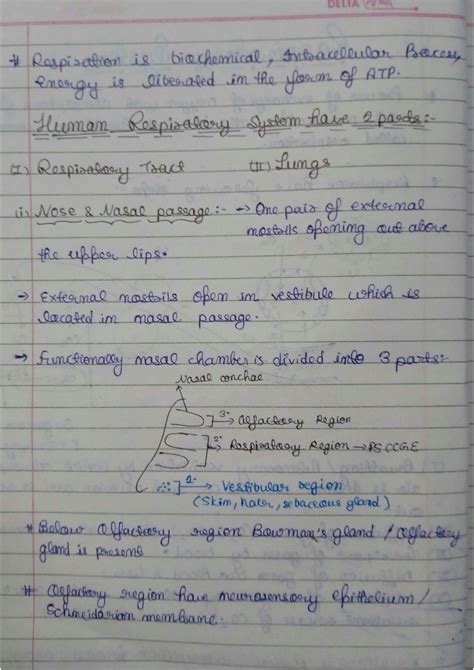 DELTA
# Respiration is biochemical, Intracellular Process,
Energy is liberated in the form of ATP.
Human Respiratory System have 2 parts:-
(I) Respiratory Tract (II) Lungs
(i) Nose & Nasal passage:- → One pair of external
nostrils opening out above
the upper lips.
→ External nostrils open in vestibule which is
located in nasal passage.
→ Functionally nasal chamber is divided into 3 parts:-
Nasal conchae
3° → Olfactory Region
2° → Respiratory Region → PSCCGE
1° → Vestibular region
(Skin, hair, sebaceous gland)
# Below Olfactory region Bowman's gland / Olfactory
gland is present
# Olfactory region have neurosensory epithelium /
Schneidarian membrane.